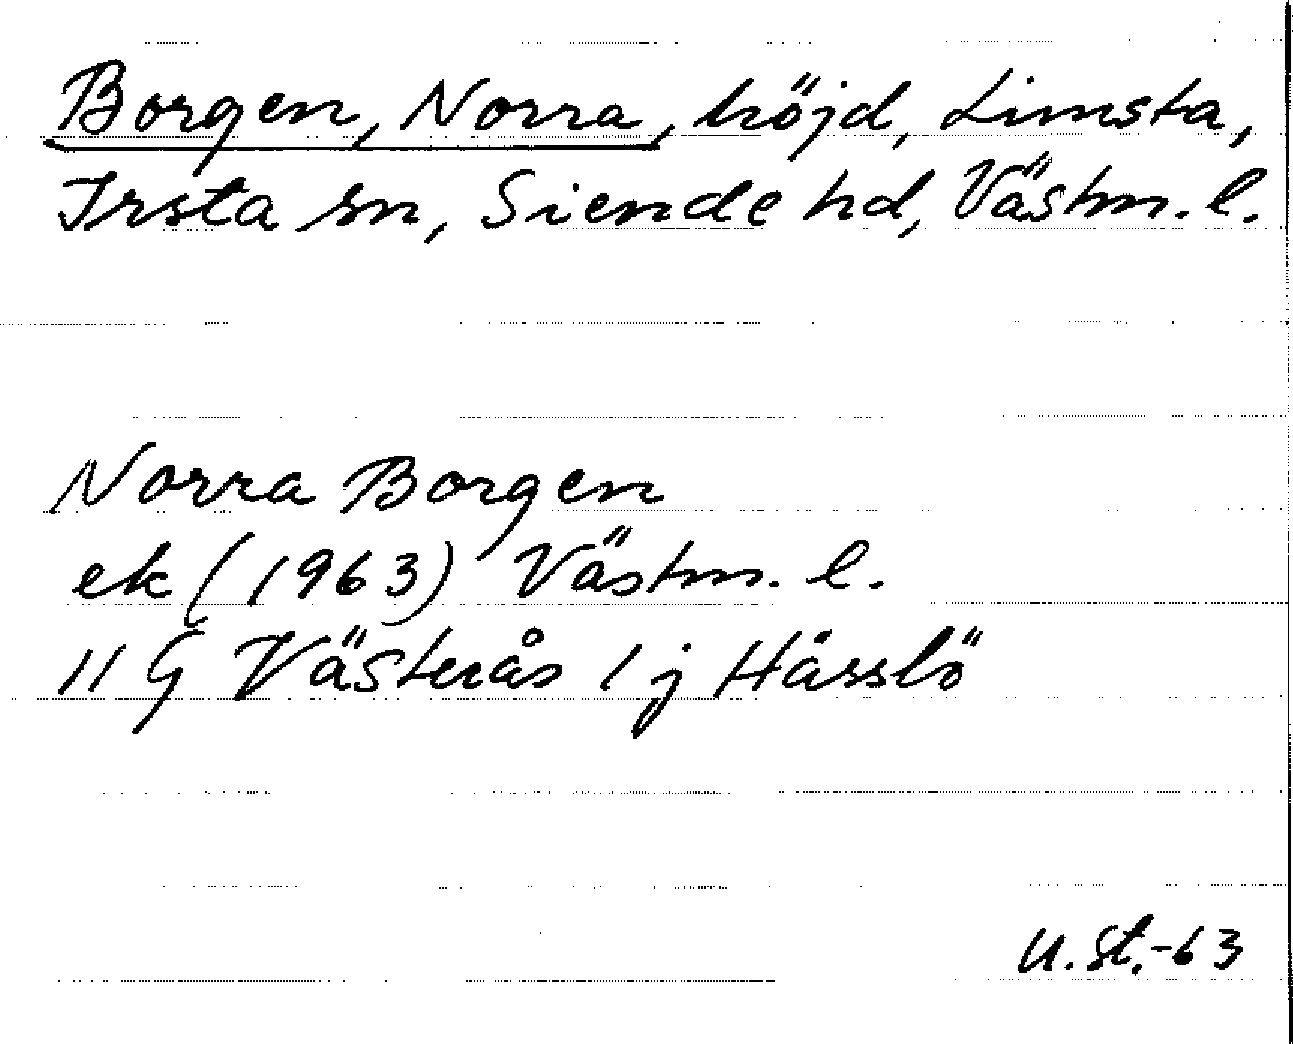 Borgen, Norra, höjd, Limsta,
Irsta sn, Siende hd, Västm. l.
Norra Borgen
ek (1963) Västm. l.
11 G Västerås 1 j Hässlö
U. St. -63